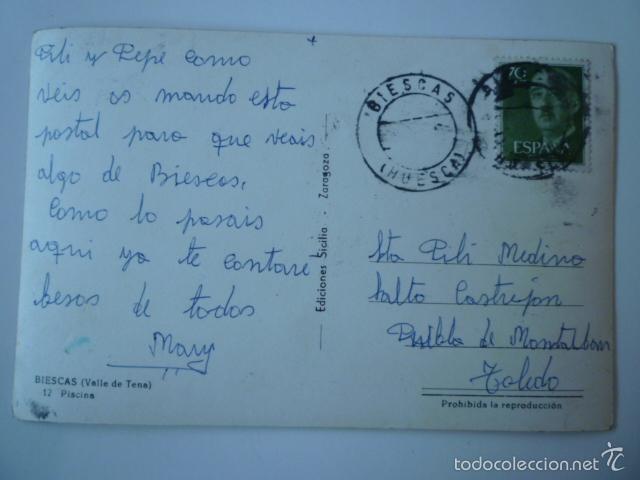 Pili y Pepe como
veis os mando esta
postal para que veais
algo de Biescas,
Como lo pasais
aqui ya te contare
besos de todos
Mary
BIESCAS (Valle de Tena)
12 Piscina
Ediciones Sicilia - Zaragoza
BIESCAS
(HUESCA)
70
ESPAÑA
Sta Pili Medina
Salto Castrejon
Puebla de Montalban
Toledo
Prohibida la reproducción
TC
todocoleccion.net